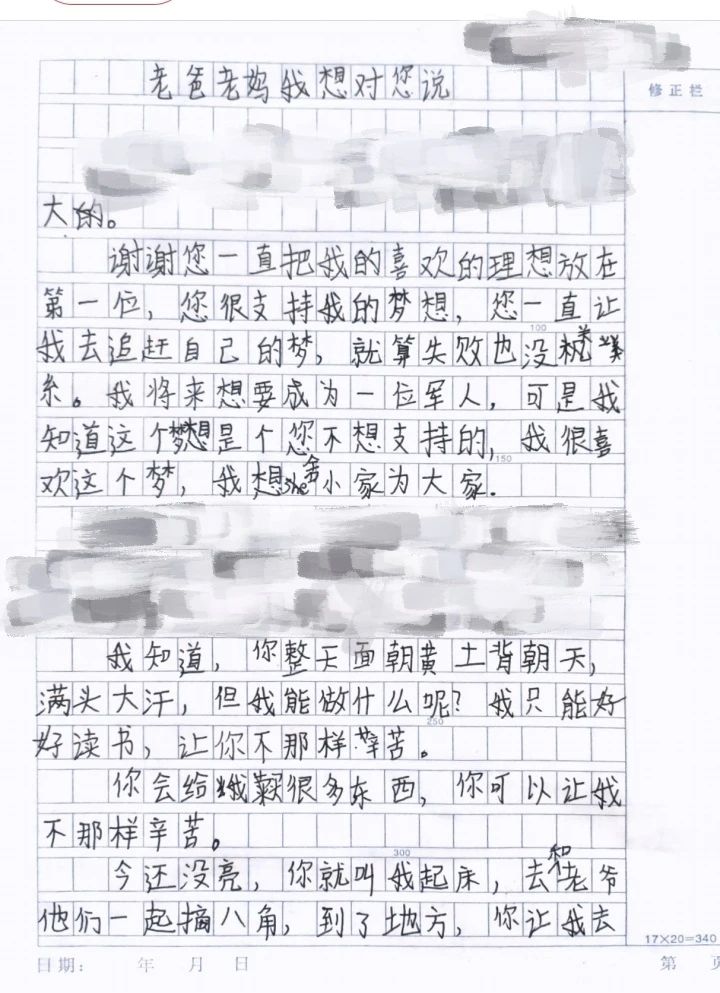 老爸老妈我想对您说
修正栏
大的。
谢谢您一直把我的喜欢的理想放在
第一位，您很支持我的梦想，您一直让
100
我去追赶自己的梦，就算失败也没关
系。我将来想要成为一位军人，可是我
知道这个梦想是个您不想支持的，我很喜
150
欢这个梦，我想she舍小家为大家.
我知道，你整天面朝黄土背朝天，
满头大汗，但我能做什么呢？我只能好
250
好读书，让你不那样辛苦。
你会给我很多东西，你可以让我
不那样辛苦。
300
今还没亮，你就叫我起床，去和老爷
他们一起摘八角，到了地方，你让我去
17×20=340
日期： 年 月 日 第 页